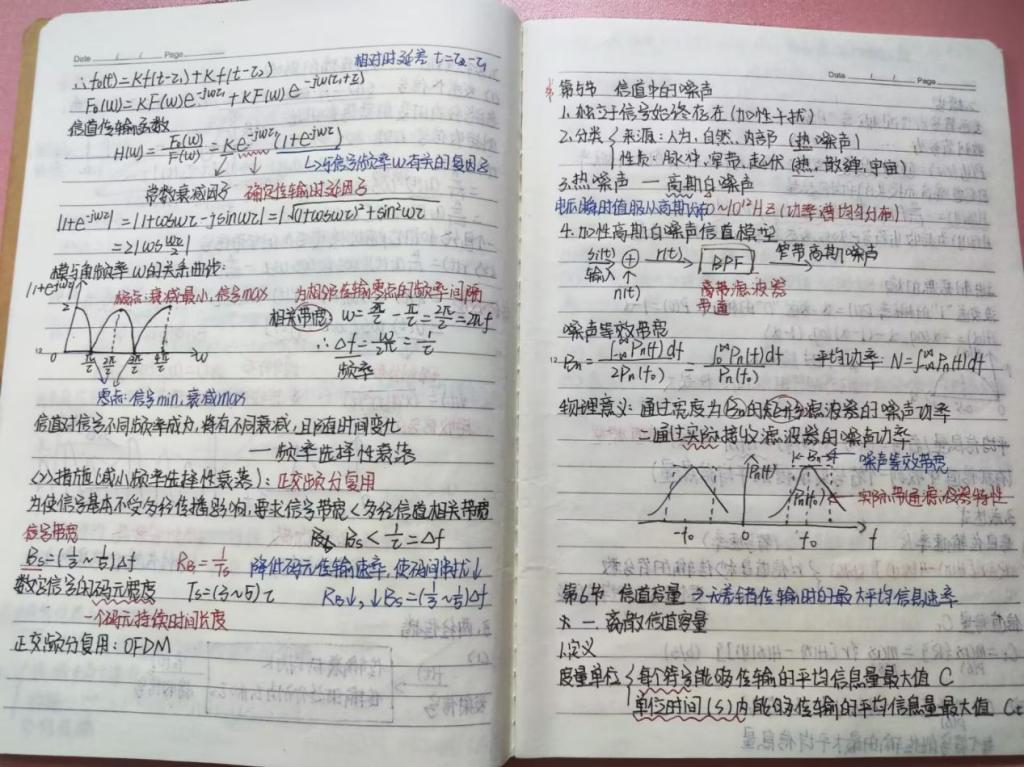 Date / / Page
相对时延差 τ=τ₂-τ₁
∴f₀(t)=Kf(t-τ₁)+Kf(t-τ₂)
F₀(w)=KF(w)e^{-jwτ₁}+KF(w)e^{-jw(τ₁+τ)}
信道传输函数
H(w)=F₀(w)/F(w)=Ke^{-jwτ₁}(1+e^{-jwτ})
↳与信号频率w有关的复因子
常数衰减因子 确定传输时延因子
|1+e^{-jwτ}|=|1+coswτ-jsinwτ|=|√(1+coswτ)²+sin²wτ
=2|cos wτ/2|
模与角频率w的关系曲线:
|1+e^{-jwτ}|
极点:衰减最小,信号max
为相邻传输零点的频率间隔
2
相关带宽 w=3π/τ-π/τ=2π/τ=2πf
∴Δf=w/2π=1/τ
频率
0 π/τ 2π/τ 3π/τ 4π/τ w
零点:信号min,衰减max
信道对信号不同频率成分,将有不同衰减,且随时间变化
—频率选择性衰落
<2>措施(减小频率选择性衰落):正交频分复用
为使信号基本不受多径传播影响,要求信号带宽<多径信道相关带宽
信号带宽
Bs<1/τ=Δf
Bs=(1/3~1/5)Δf RB=1/Ts 降低码元传输速率,使码间串扰↓
数字信号的码元宽度 Ts=(3~5)τ RB↓,↓Bs=(1/3~1/5)Δf
一个码元持续时间长度
正交频分复用:OFDM
Date / / Page
第5节 信道中的噪声
1.独立于信号始终存在(加性干扰)
2.分类{来源:人为,自然,内部(热噪声)
性质:脉冲,窄带,起伏(热,散弹,宇宙)
3.热噪声—高斯白噪声
电压瞬时值服从高斯分布 0~10¹²HZ(功率谱均匀分布)
4.加性高斯白噪声信道模型
si(t) → + r(t) → BPF 窄带高斯噪声
输入 n(t)
带通
噪声等效带宽
Bn=∫_{-∞}^{∞}Pn(f)df/2Pn(f₀)=∫_{0}^{∞}Pn(f)df/Pn(f₀) 平均功率:N=∫_{-∞}^{∞}Pn(f)df
物理意义:通过宽度为Bn的矩形滤波器的噪声功率
=通过实际接收滤波器的噪声功率
Pn(f) Bn 噪声等效带宽
Pn(f₀) 实际带通滤波器特性
-f₀ 0 f₀ f
第6节 信道容量→无差错传输时的最大平均信息速率
※一.离散信道容量
1.定义
度量单位{每个符号能够传输的平均信息量最大值 C
单位时间(s)内能够传输的平均信息量最大值 Ct